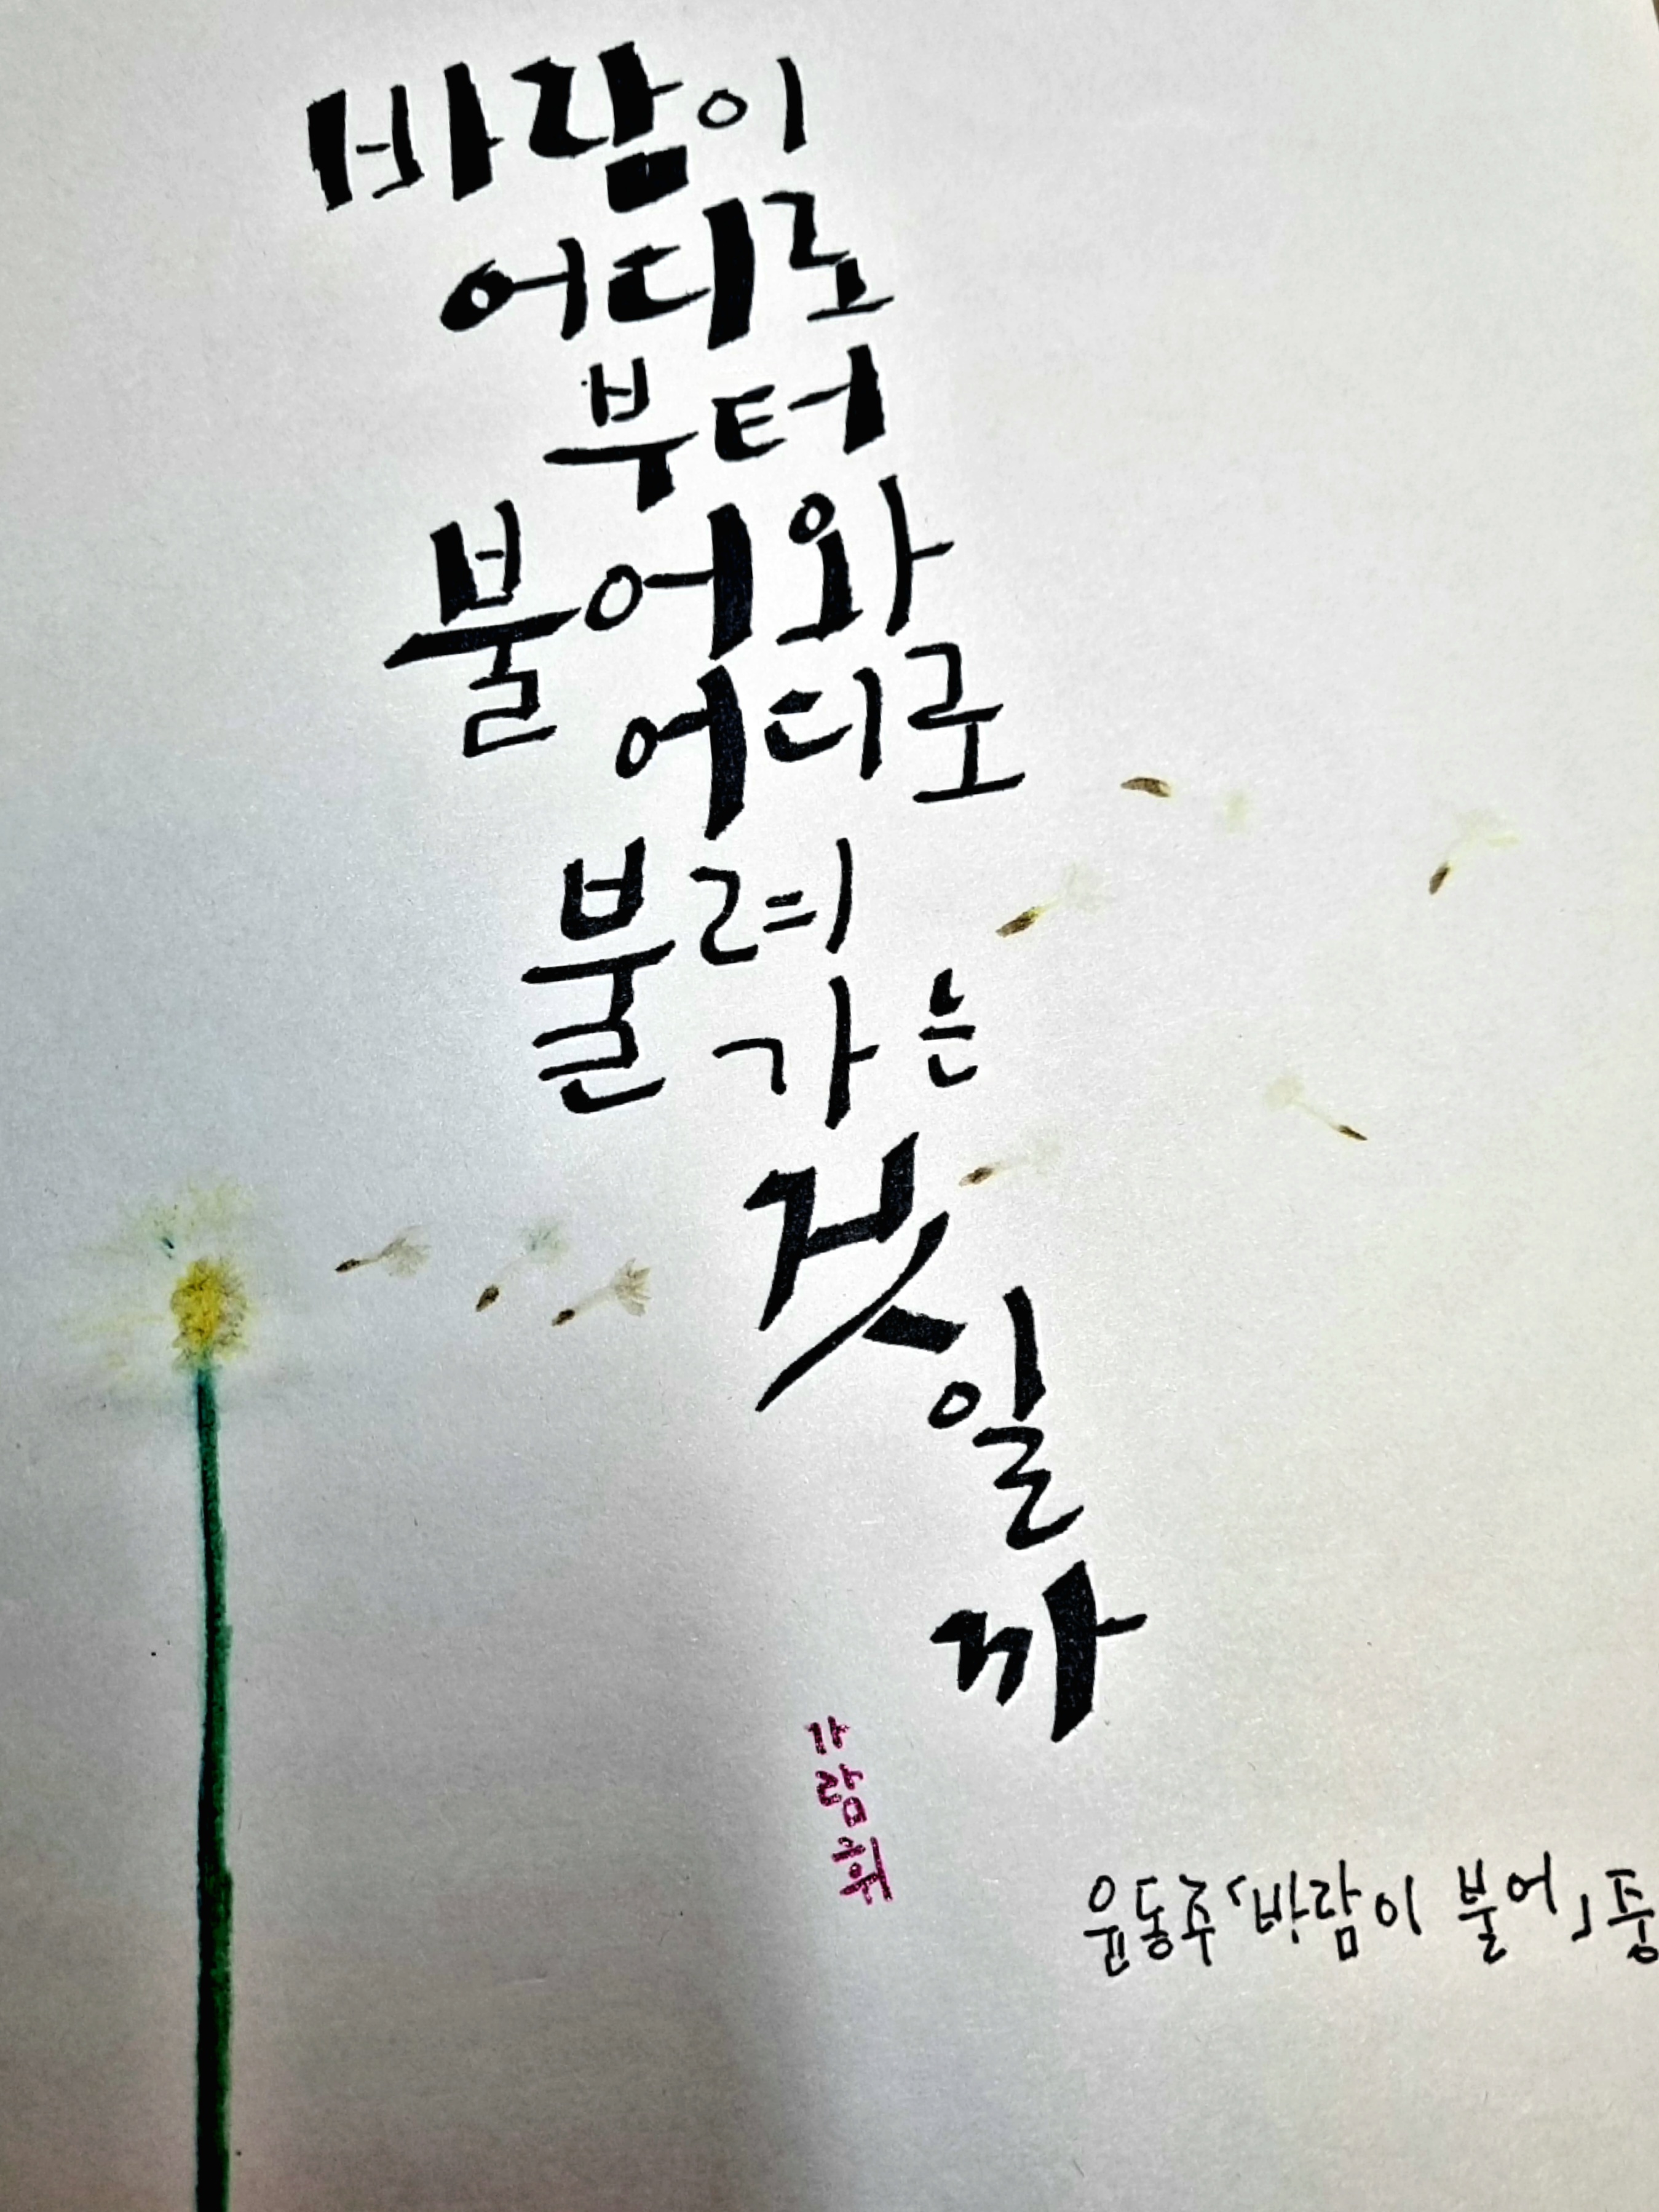 바람이
어디로
부터
불어와
어디로
불려
가은
것
일
까
가
람
휘
윤동주「바람이 불어」중